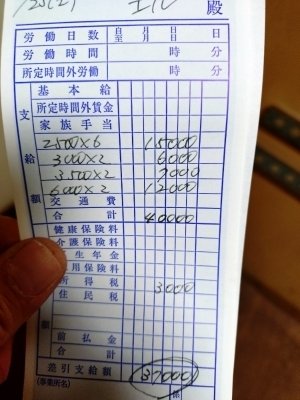 殿
労働日数 自 至 月 月 日 日 日
労働時間 時 分
所定時間外労働 時 分
支給額
基本給
所定時間外賃金
家族手当
2500×6 15000
3000×2 6000
3,500×2 7000
6000×2 12000
交通費
合計 40000
健康保険料
介護保険料
生年金
用保険料
所得税 3000
住民税
額
前払金
合計
差引支給額 37000
(事業所名) 係